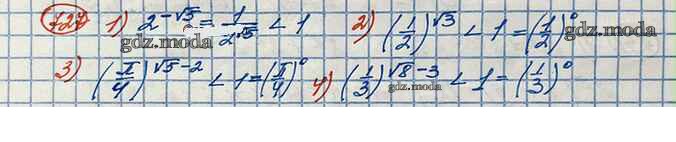 727 1) 2^{-√5} = 1/2^{√5} < 1 2) (1/2)^{√3} < 1 = (1/2)^0
gdz.moda gdz.moda
3) (π/4)^{√5-2} < 1 = (π/4)^0 4) (1/3)^{√8-3} < 1 = (1/3)^0
gdz.moda